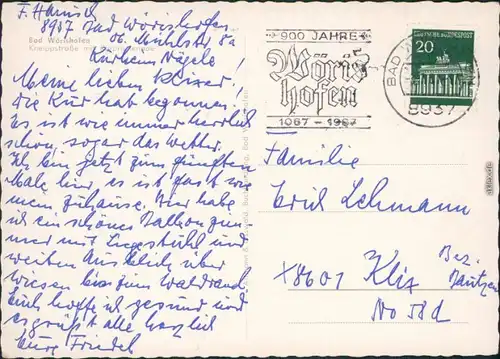 F. Hanisch
8937 Bad Wörishofen
ob. Mühlstr. 8a
Kurheim Nägele!
Bad Wörishofen
Kneippstraße mit
Meine lieben Klixer!
Die Kur hat begonnen.
Es ist wie immer herrlich
schön, sogar das Wetter.
Ich bin jetzt zum fünften
Male hier, es ist fast wie
mein zuhause. Hier habe
ich ein schönes Balkonzim-
mer mit Liegestuhl und
weiten Ausblick über
Wiesen bis zum Waldrand.
Euch hoffe ich gesund und
es grüßt alle herzlich
Eure Friedel
900 JAHRE
Wöris
hofen
1067 – 1967
BAD
8937
DEUTSCHE BUNDESPOST
20
Familie
Erich Lehmann
X8601 Klix
Bez.
Bautzen
No 58d